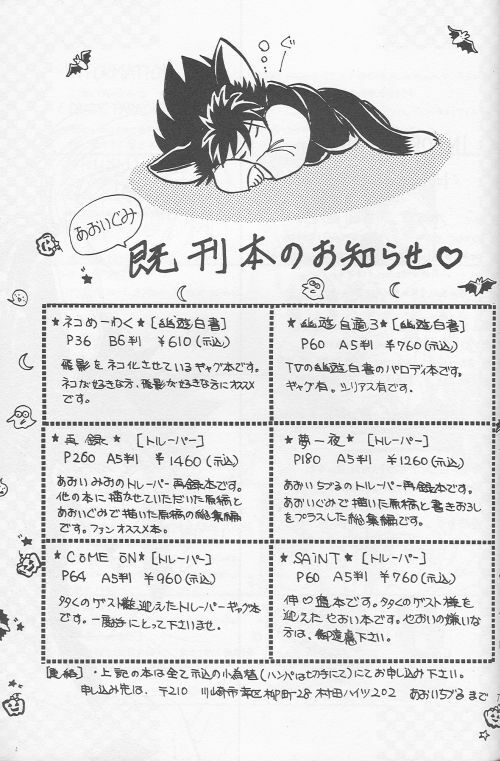 ぐー
あおいぐみ
既刊本のお知らせ♡
★ネコめーわく★[幽遊白書]
P36 B6判 ¥610(税込)
飛影をネコ化させているギャグ本です。
ネコ好きな方、飛影好きな方にオススメ
です。
★幽遊自適3★[幽遊白書]
P60 A5判 ¥760(税込)
TVの幽遊白書のパロディ本です。
ギャグ有。シリアス有です。
★再録★[トルーパー]
P260 A5判 ¥1460(税込)
あおいみおのトルーパー再録本です。
他の本に描かせていただいた原稿と
あおいぐみで描いた原稿の総集編
です。ファンオススメ本。
★夢一夜★[トルーパー]
P180 A5判 ¥1260(税込)
あおいちづるのトルーパー再録本です。
あおいぐみで描いた原稿と書きおろし
をプラスした総集編です。
★COME ON★[トルーパー]
P64 A5判 ¥960(税込)
多くのゲスト様迎えたトルーパーギャグ本
です。一度手にとって下さいませ。
★SAiNT★[トルーパー]
P60 A5判 ¥760(税込)
伸♡当本です。多くのゲスト様を
迎えたやおい本です。やおいの嫌いな
方は、御遠慮下さい。
・上記の本は全て税込の小為替(ハンパは切手にて)にてお申し込み下さい。
申し込み先は、〒210 川崎市幸区柳町28 村田ハイツ202 あおいちづるまで